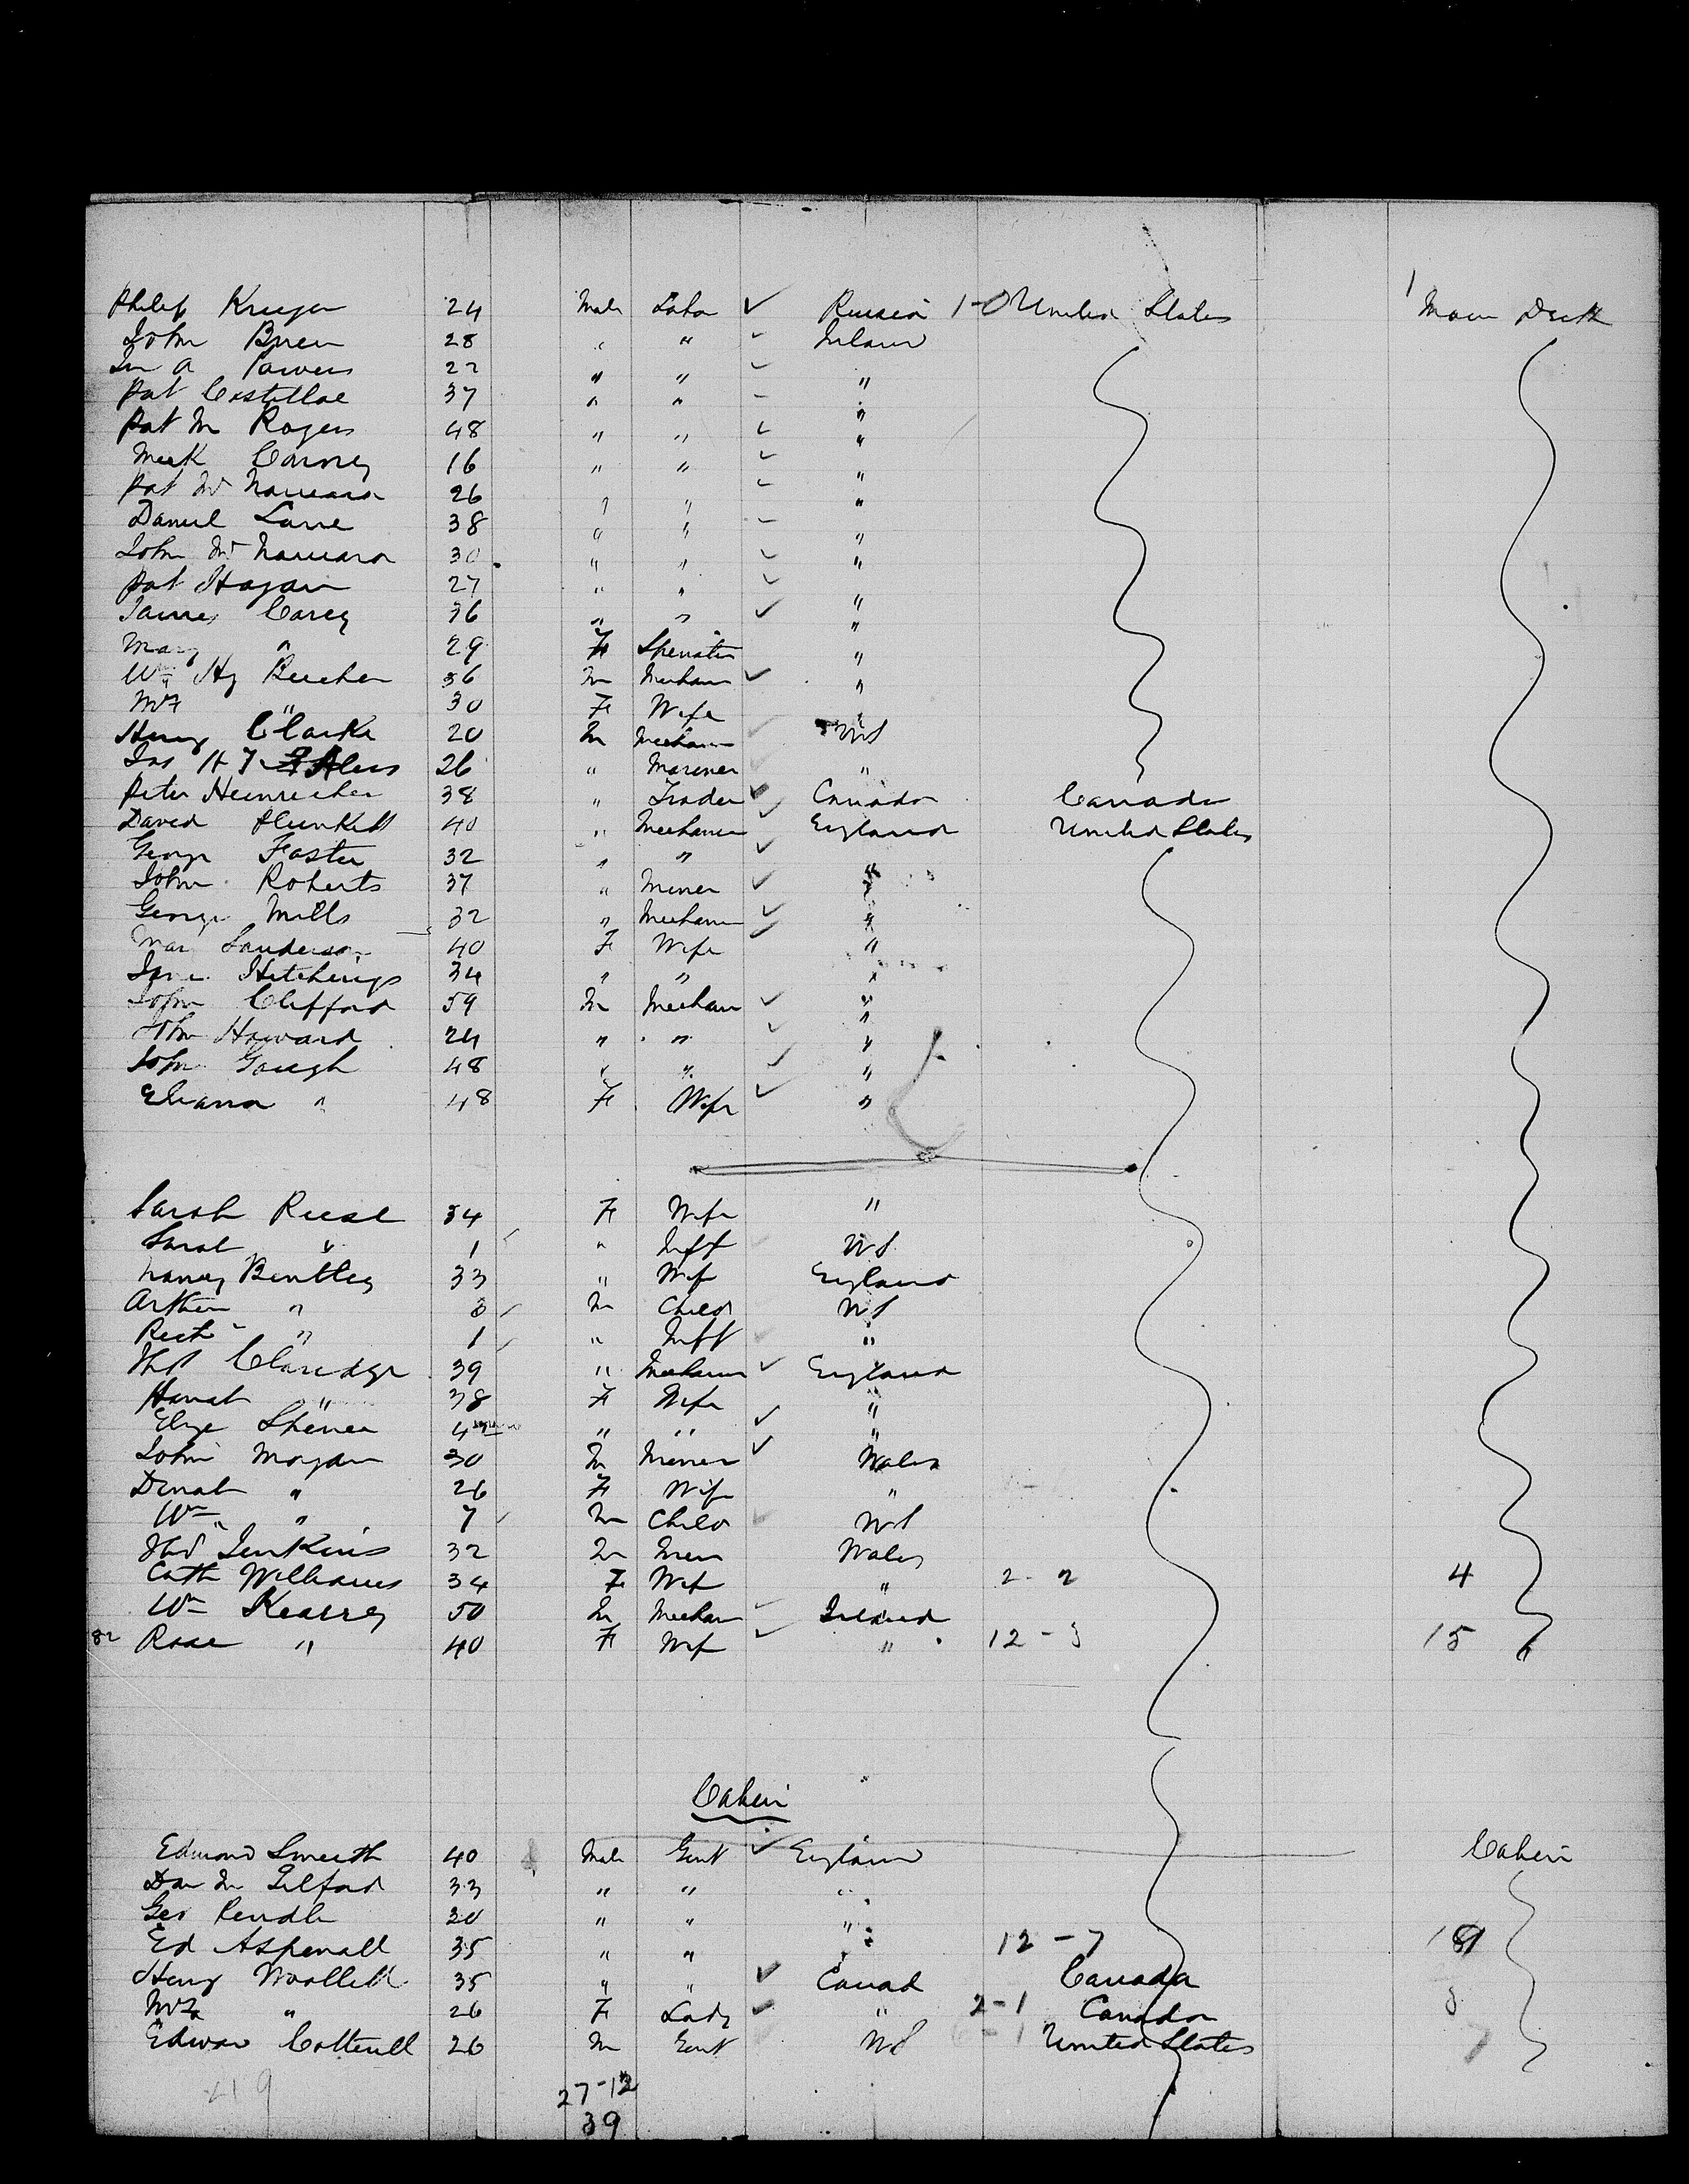 Philip Kruger 24 Male Labor ✓ Russia 1-0 United States 1 Main Deck
John Brien 28 " " Ireland
Jn A Powers 22 " " "
Pat Costelloe 37 " " "
Pat M Rogers 48 " " "
Mick Carney 16 " " "
Pat McNamara 26 " " "
Daniel Lane 38 " " "
John McNamara 30 " " "
Pat Hagan 27 " " "
James Carey 36 " " ✓ "
Mary " 29 F "
Wm Hy 36 M Mechan ✓ "
Mrs " 30 F Wife "
Henry Clarke 20 M Mechan US
Jas H 26 " Mariner "
Peter 38 " Trader ✓ Canada Canada
David Plunkett 40 " Mechan ✓ England United States
George Foster 32 " " ✓ "
John Roberts 37 " Miner ✓ "
George Mills 32 " Mechan ✓ "
Sanderson 40 F Wife ✓ "
Hitchings 34 " " "
John Clifford 59 M Mechan ✓ "
John Howard 24 " " ✓ "
John Gough 48 " " ✓ "
Eleanor " 48 F Wife ✓ "
Sarah Reese 34 F Wife "
Sarah " 1 " Inft US
Nancy Bentley 33 " Wife England
Arthur " 3 M Child US
" 1 " Inft "
Thos Claridge 39 " Mechan ✓ England
Hanah " 38 F Wife "
Eliza " " ✓ "
John Morgan 30 M Miner ✓ Wales
Dinah " 26 F Wife "
Wm " 7 M Child US
Thos Jenkins 32 M Miner Wales
Cath Williams 34 F Wife " 2-2 4
Wm Kearney 50 M Mechan Ireland
82 Rose " 40 F Wife " 12-3 15
Cabin
Edmond Smith 40 Male Gent ✓ England Cabin
Telford 33 " " "
Geo Rendle 30 " " "
Ed Aspenall 35 " " " 12-7
Henry Woollett 35 " " ✓ Canad Canada
Mrs " 26 F Lady ✓ " 2-1 Canada
Edwar Cotterell 26 M Gent US United States
27-12
39